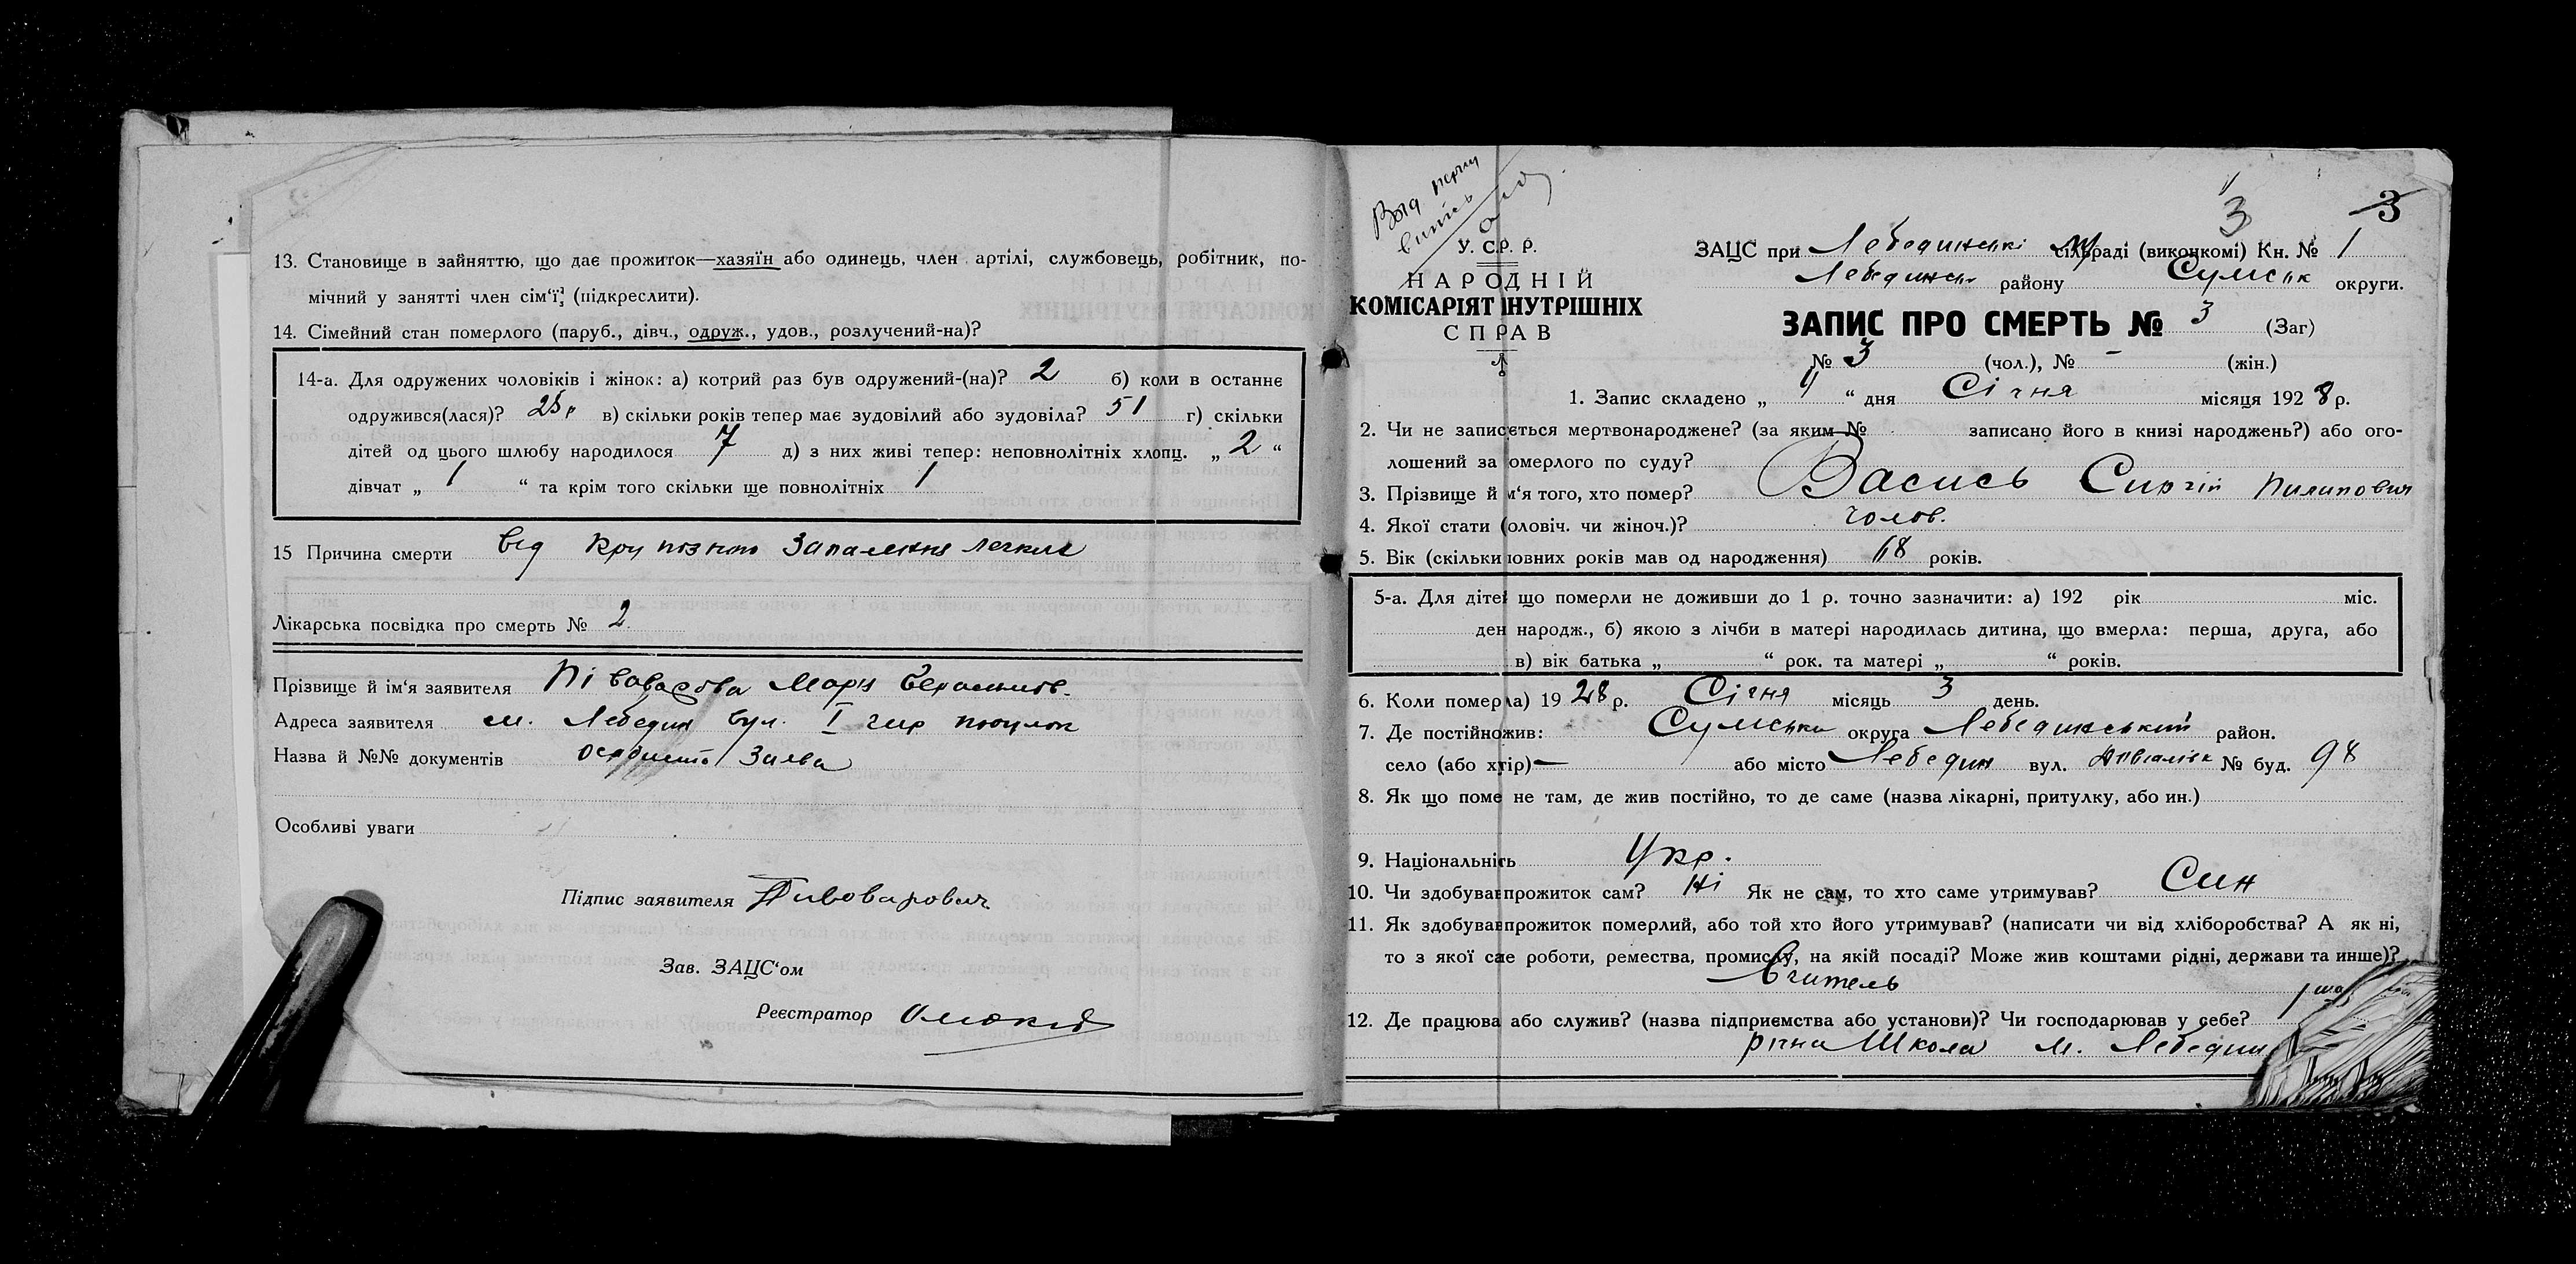 13. Становище в зайняттю, що дає прожиток—хазяїн або одинець, член артілі, службовець, робітник, по-
мічний у занятті член сім'ї (підкреслити).
14. Сімейний стан померлого (паруб., дівч., одруж., удов., розлучений-на)?
14-а. Для одружених чоловіків і жінок: а) котрий раз був одружений-(на)? 2 б) коли в останнє
одружився(лася)? 25р в) скільки років тепер має зудовілий або зудовіла? 51 г) скільки
дітей од цього шлюбу народилося 7 д) з них живі тепер: неповнолітніх хлопц. „ 2 “
дівчат „ 1 “ та крім того скільки ще повнолітніх 1
15 Причина смерти від крупозного запалення легких
Лікарська посвідка про смерть № 2
Прізвище й ім'я заявителя Півоварова Марія
Адреса заявителя м. Лебедин вул. I
Назва й №№ документів особиста заява
Особливі уваги
Підпис заявителя
Зав. ЗАЦС'ом
Реєстратор
3
3
У. С. Р. Р.
НАРОДНІЙ
КОМІСАРІЯТ ВНУТРІШНІХ
СПРАВ
ЗАЦС при Лебединські сільраді (виконкомі) Кн. № 1
Лебединськ району Сумськ округи.
ЗАПИС ПРО СМЕРТЬ № 3 (Заг)
№ 3 (чол.), № – (жін.)
1. Запис складено „ 4 “ дня Січня місяця 1928 р.
2. Чи не записується мертвонароджене? (за яким № записано його в книзі народжень?) або ого-
лошений за померлого по суду?
3. Прізвище й ім'я того, хто помер? Васись Сиргій Пилипович
4. Якої стати (чоловіч. чи жіноч.)? Чолов.
5. Вік (скільки повних років мав од народження) 68 років.
5-а. Для дітей що померли не доживши до 1 р. точно зазначити: а) 192 рік міс.
ден народж., б) якою з лічби в матері народилась дитина, що вмерла: перша, друга, або
в) вік батька „ “ рок. та матері „ “ років.
6. Коли помер(ла) 1928 р. Січня місяць 3 день.
7. Де постійно жив: Сумська округа Лебединський район.
село (або хутір) — або місто Лебедин вул. № буд. 98
8. Як що помер не там, де жив постійно, то де саме (назва лікарні, притулку, або ин.)
9. Національність Укр.
10. Чи здобував прожиток сам? Ні Як не сам, то хто саме утримував? Син
11. Як здобував прожиток померлий, або той хто його утримував? (написати чи від хліборобства? А як ні,
то з якої саме роботи, ремества, промислу, на якій посаді? Може жив коштами рідні, держави та инше)?
Вчитель
12. Де працював або служив? (назва підприємства або установи)? Чи господарював у себе? 1ша
річна Школа м. Лебедин